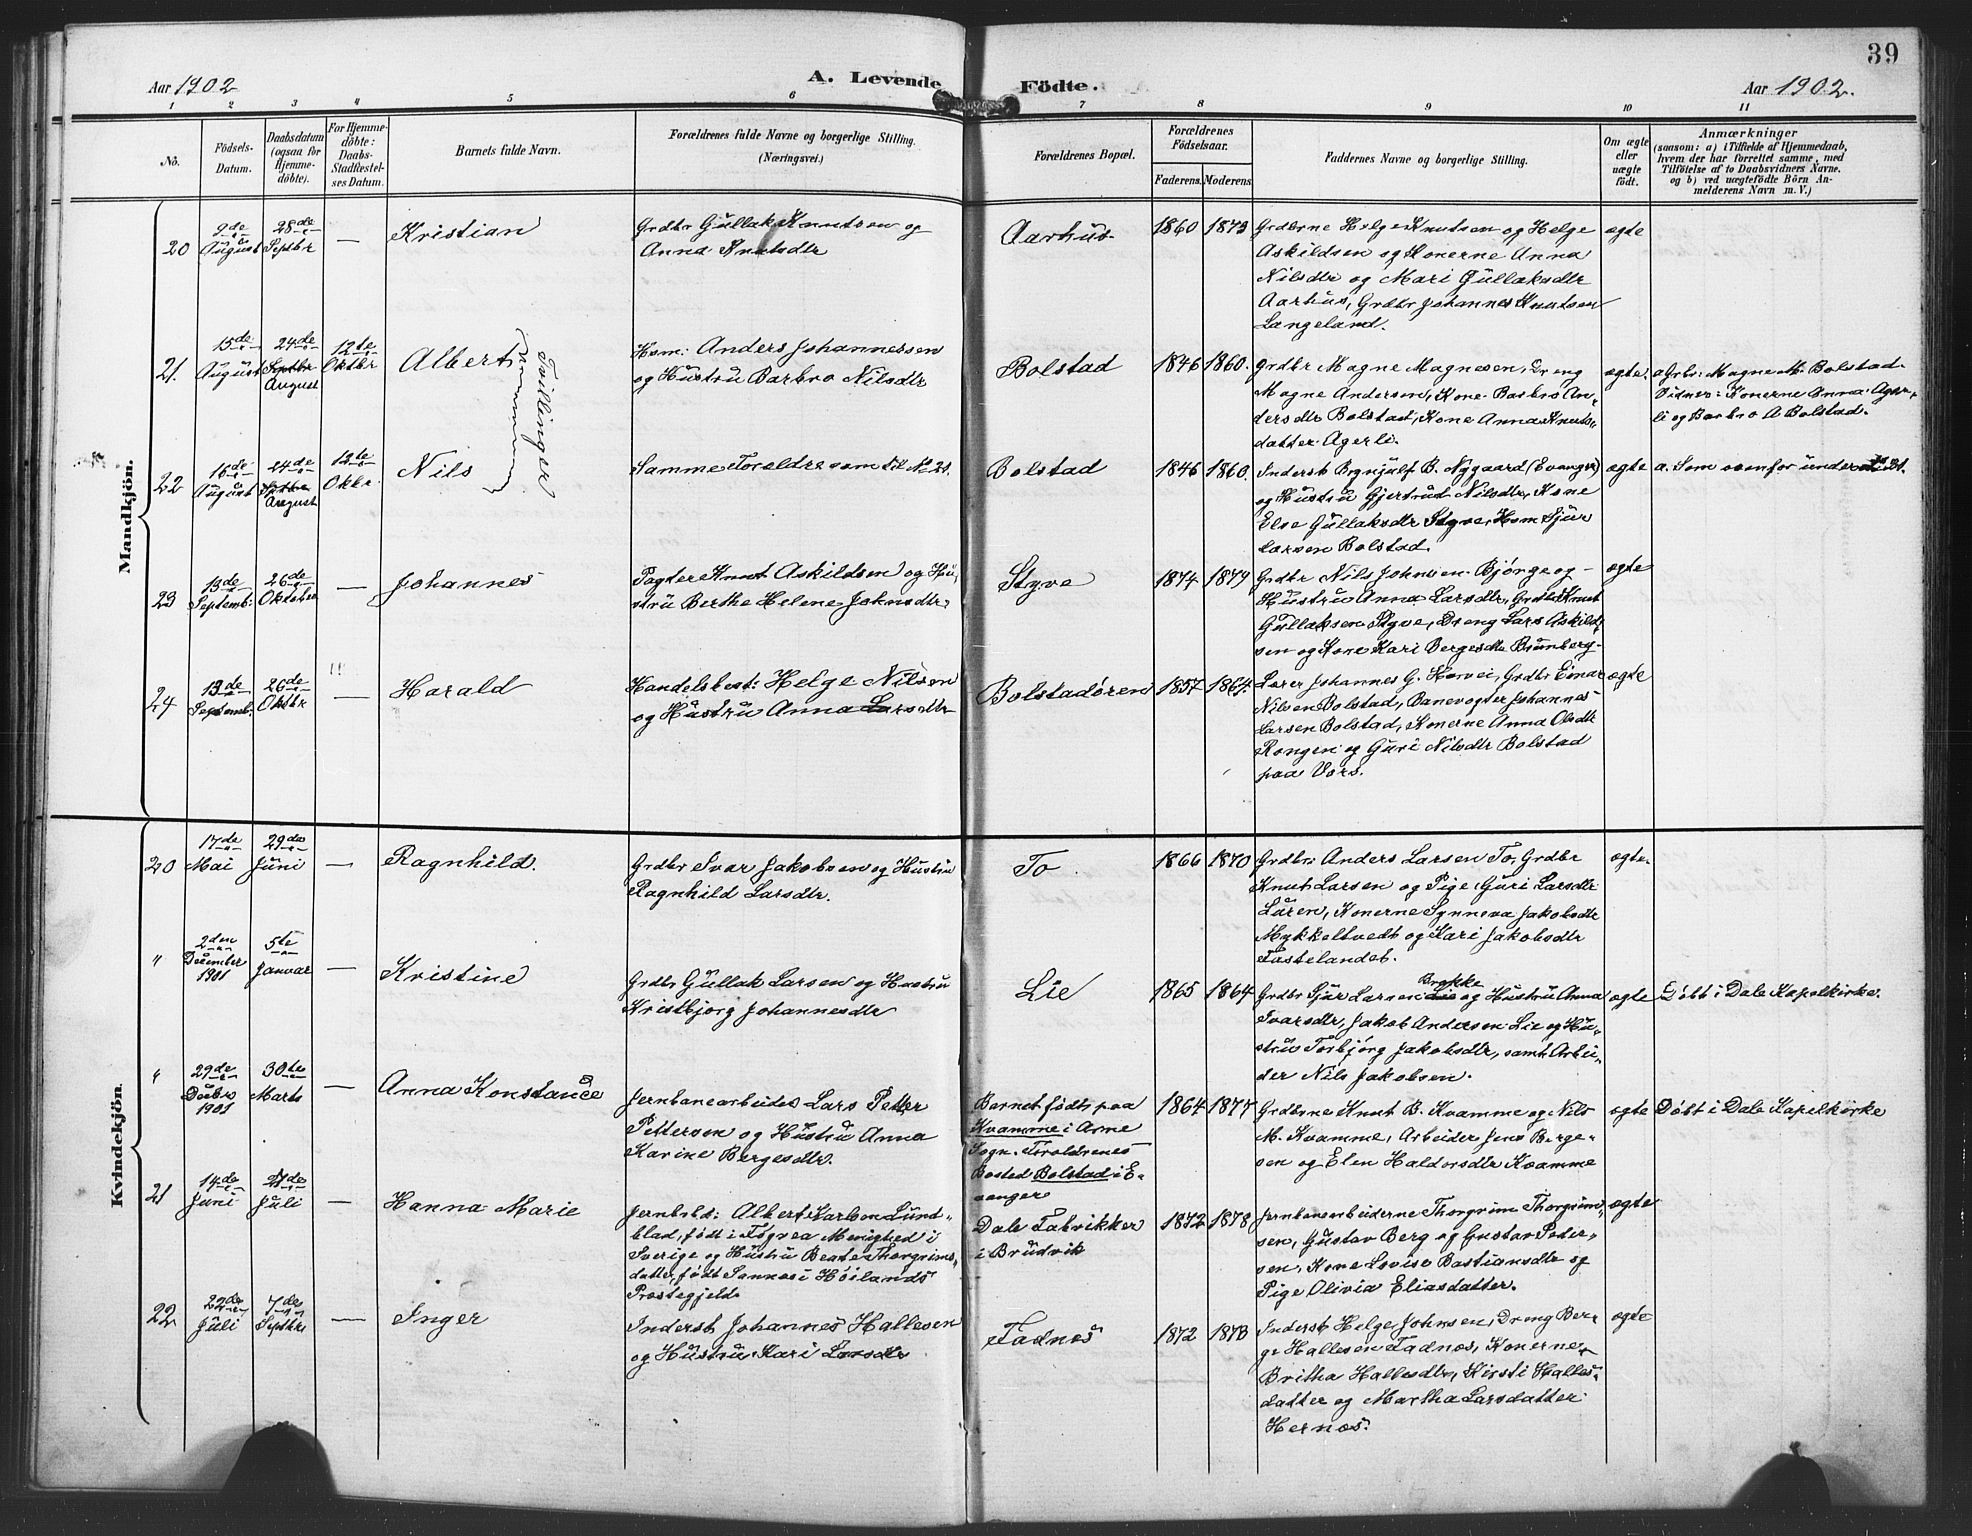 39
Aar 1902
A. Levende
Födte.
Aar 1902.
1 2 3 4 5 6 7 8 9 10 11
No.
Födsels-
Datum.
Daabsdatum
(ogsaa for
Hjemme-
döbte).
For Hjemme-
döbte:
Daabs-
Stadfestel-
ses Datum.
Barnets fulde Navn.
Forældrenes fulde Navne og borgerlige Stilling.
(Næringsvei.)
Forældrenes Bopæl.
Forældrenes
Födselsaar.
Faderens.
Moderens.
Faddernes Navne og borgerlige Stilling.
Om ægte
eller
uægte
født.
Anmærkninger
(saasom: a) i Tilfælde af Hjemmedaab,
hvem der har forrettet samme, med
Tilföielse af to Daabsvidners Navne.
og b) ved uægtefödte Börn An-
melderens Navn m. V.)
Mandkjön.
20
9de
August
28de
Septbr
—
Kristian
Grdbr Gullak Knutsen og
Anna Knutsdtr
Aarhus
1860
1873
Grdbrne Helge Knutsen og Helge
Askildsen og Konerne Anna
Nilsdtr og Mari Gullaksdtr
Aarhus, Grdbr Johannes Knutsen
Langeland.
ægte
21.
15de
August
24de
Septbr
August
12te
Oktbr
Albert
Tvillinger
Hsm: Anders Johannessen
og Hustru Barbro Nilsdtr
Bolstad
1846
1860.
Grdbr Magne Magnesen, Dreng
Magne Andersen, Kone Barbro An-
dersdtr Bolstad, Kone Anna Knuts-
datter Agerli.
ægte.
a Grb: Magne M. Bolstad
Vidner: Konerne Anna Ager-
li og Barbro A Bolstad.
22
16de
August
24de
Septbr
August
12te
Oktbr.
Nils
Samme Forældre som til No 21.
Bolstad
1846
1860.
Inderst Brynjulf B. Nygaard (Evanger)
og Hustru Gjertrud Nilsdtr, Kone
Else Gullaksdtr Styve, Hsm Sjur
Larsen Bolstad.
ægte
a. Som ovenfor under No 21.
23
13de
Septemb:
26de
Oktober
—
Johannes
Pagter Knut Askildsen og Hu-
stru Berthe Helene Johnsdtr.
Styve
1874
1879
Grdbr Nils Johnsen Bjørge og
Hustru Anna Larsdtr, Grdbr Knut
Gullaksen Styve, Dreng Lars Askild-
sen og Kone Kari Bergesdtr Brunberg
ægte
24
13de
Septemb:
26de
Oktbr
—
Harald
Handelsbest: Helge Nilsen
og Hustru Anna Larsdtr
Bolstadøren
1857
1864.
Lærer Johannes G. Horvei, Grdbr Einar
Nilsen Bolstad, Banevogter Johannes
Larsen Bolstad, Konerne Anna Olsdtr
Rongen og Guri Nilsdtr Bolstad
paa Vors.
ægte
Kvindekjön.
20
17de
Mai
29de
Juni
—
Ragnhild.
Grdbr Ivar Jakobsen og Hustru
Ragnhild Larsdtr.
To
1866
1870
Grdbr: Anders Larsen To, Grdbr
Knut Larsen og Pige Guri Larsdtr
Luren, Konerne Synneva Jakobsdtr
Mykkeltvedt og Kari Jakobsdtr
Fastelandet.
ægte
"
2den
December
1901
5te
Januar
—
Kristine
Grdbr Gullak Larsen og Hustru
Kristbjorg Johannesdtr
Lie
1865
1864
Brekke
Grdbr Sjur Larsen Lie og Hustru Anna
Ivarsdtr, Jakob Andersen Lie og Hu-
stru Torbjørg Jakobsdtr, samt Arbei-
der Nils Jakobsen.
ægte
Døbt i Dale Kapelkirke.
"
29de
Decbr
1901
30te
Marts
—
Anna Konstance
Jernbanearbeider Lars Petter
Pettersen og Hustru Anna
Karine Bergesdtr.
Barnet født paa
Kvamme i Arne
Sogn. Forældrenes
Bosted Bolstad i E-
vanger
1864
1877
Grdbrne Knut B. Kvamme og Nils
M. Kvamme, Arbeider Jens Berge-
sen og Elen Haldorsdtr Kvamme
ægte
Døbt i Dale Kapelkirke
21
14de
Juni
21de
Juli
—
Hanna Marie
Albert Karlsen Lund-
blad, født i Fogrea Menighed i
Sverige og Hustru Beate Thorgrims-
datter, født Sannes i Høilands
Præstegjeld.
Dale Fabrikker
i Brudvik
1872
1878
Jernbanearbeiderne Thorgrim Thorgrim-
sen, Gustav Berg og Gustav Peder-
sen, Kone Lovise Bastiansdtr og
Pige Olivia Eliasdatter.
ægte
22
22de
Juli
7de
Septbr
—
Inger
Inderst Johannes Hallesen
og Hustru Kari Larsdtr
Fadnes
1872
1873
Inderst Helge Johnsen, Dreng Ber-
ge Hallesen Fadnes, Konerne
Britha Hallesdtr, Kirsti Halles-
datter og Martha Larsdatter
Hernes.
ægte